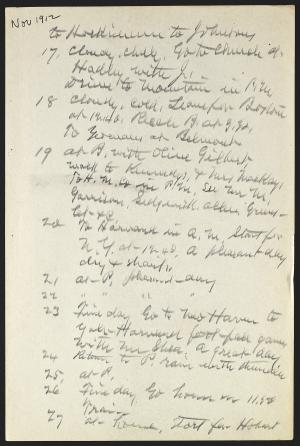 Nov 1912
to Hoskinsum to Johnsons
17, Cloudy, chilly, Go to Church at
Hadley with J.,
Drive to Mountain in P.M.
18 Cloudy, cold, Leave for Boston
at 12.40, Reach B. at 3.30,
To Yeomans at Belmont
19 at B. with Clive Gilbert
walk to Kennedys, & Mrs
To H. M. in P.M. See
Garrison, Sedgwick, Allen
20 To Harvard in A.M. Start for
N.Y. at 12.40, A pleasant day
dry & sharp.
21 at P. pleasant day
22 " " "
23 Fine day Go to New Haven to
Yale-Harvard foot-ball game,
with Mr Shea; A great day
24 Return to P. rain with thunder
25, at P.
26 Fine day Go home on 11.50
train,
27 at home, Start for Hobart